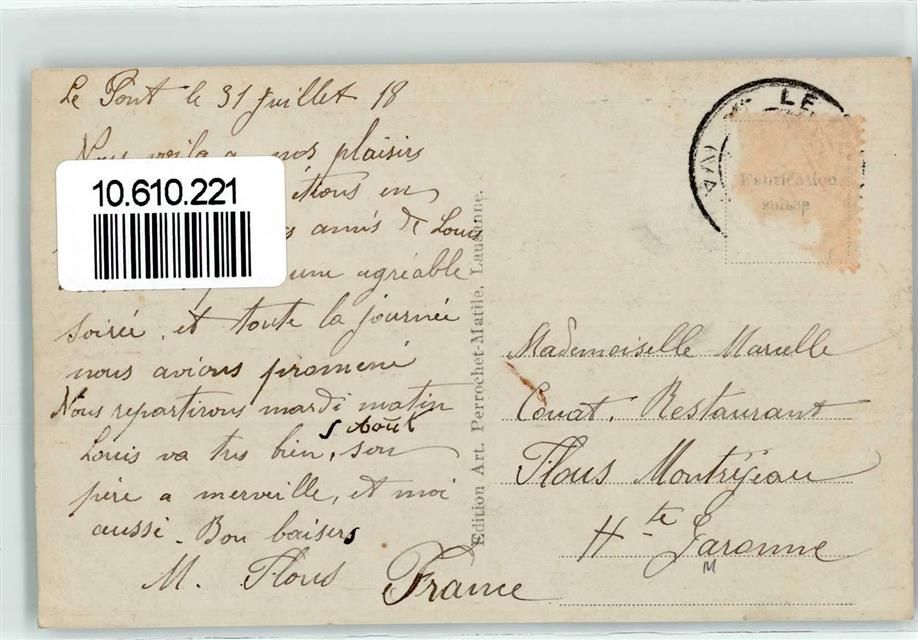 Le Pont le 31 juillet 18
Nous voila a nos plaisirs
10.610.221
étions en
amis de Louis
une agréable
soirée, et toute la journée
nous avions promené
Nous repartirons mardi matin
5 Aout
Louis va tres bien, son
père a merveille, et moi
aussi. Bon baisers
M. Flous
Edition Art. Perrochet-Matile, Lausanne.
LE
Fabrication
suisse
Mademoiselle Marcelle
Couat. Restaurant
Flous Montréjeau
Hte Garonne
France